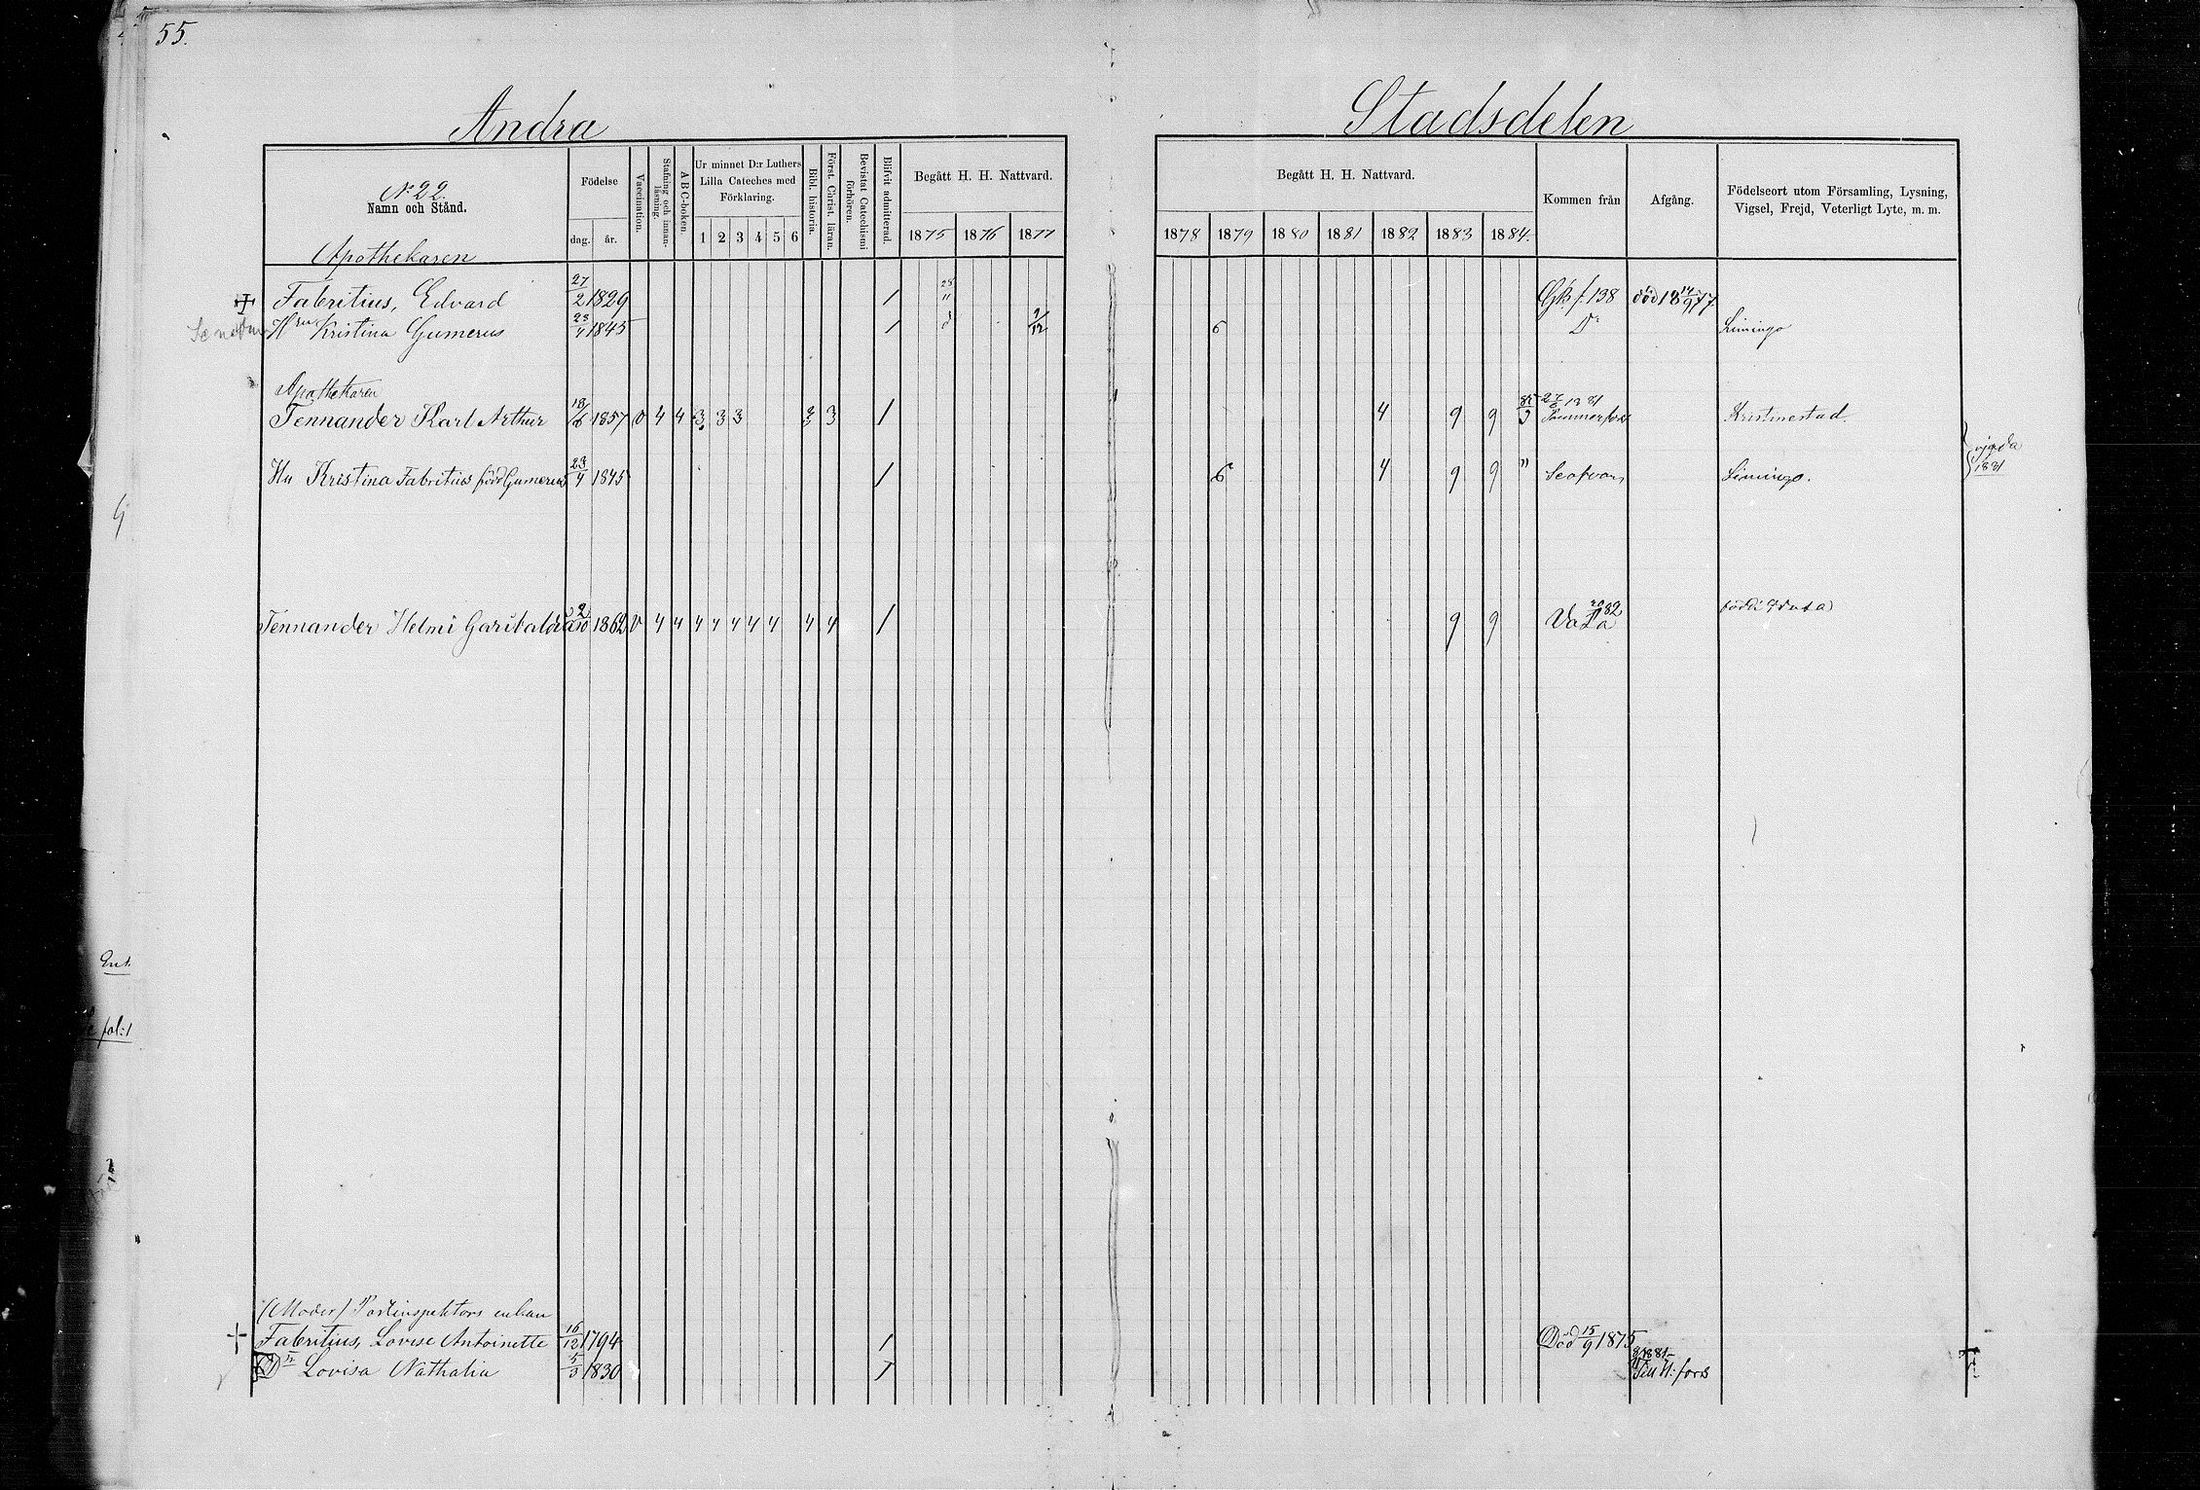 55.
Andra Stadsdelen
No 22.
Namn och Stånd.
Födelse
dag. år.
Vaccination.
Stafning och innanläsning.
A B C-boken.
Ur minnet D:r Luthers Lilla Cateches med Förklaring.
1 2 3 4 5 6
Bibl. historia.
Först. Christ. läran.
Bevistat Catechismi förhören.
Blifvit admitterad.
Begått H. H. Nattvard.
1875 1876 1877
Begått H. H. Nattvard.
1878 1879 1880 1881 1882 1883 1884.
Kommen från
Afgång.
Födelseort utom Församling, Lysning, Vigsel, Frejd, Veterligt Lyte, m. m.
Apothekaren
Fabritius, Edvard 27/2 1829 / Gkb f 138 död 18 14/9 77
Hru Kristina Gumerus 23/4 1845 / 9/12 6 Do Limingo
Apothekaren
Tennander Karl Arthur 18/6 1857 v 4 4 3 3 3 3 3 / 4 9 9 1881 Kristinestad.
Hu Kristina Fabritius född Gumerus 23/4 1845 / 6 4 9 9 " Seofvan Limingo.
vigda 1881
Tennander Helmi Garibalda 2/10 1862 v 4 4 4 4 4 4 4 4 4 / 9 9 82 Vasa född i
(Moder) Postinspektors enkan
Fabritius, Lovise Antoinette 16/12 1794 / Död 15/9 1875
Dr Lovisa Nathalia 5/3 1830 / 1881 Till H:fors
Ent.
fol: 1